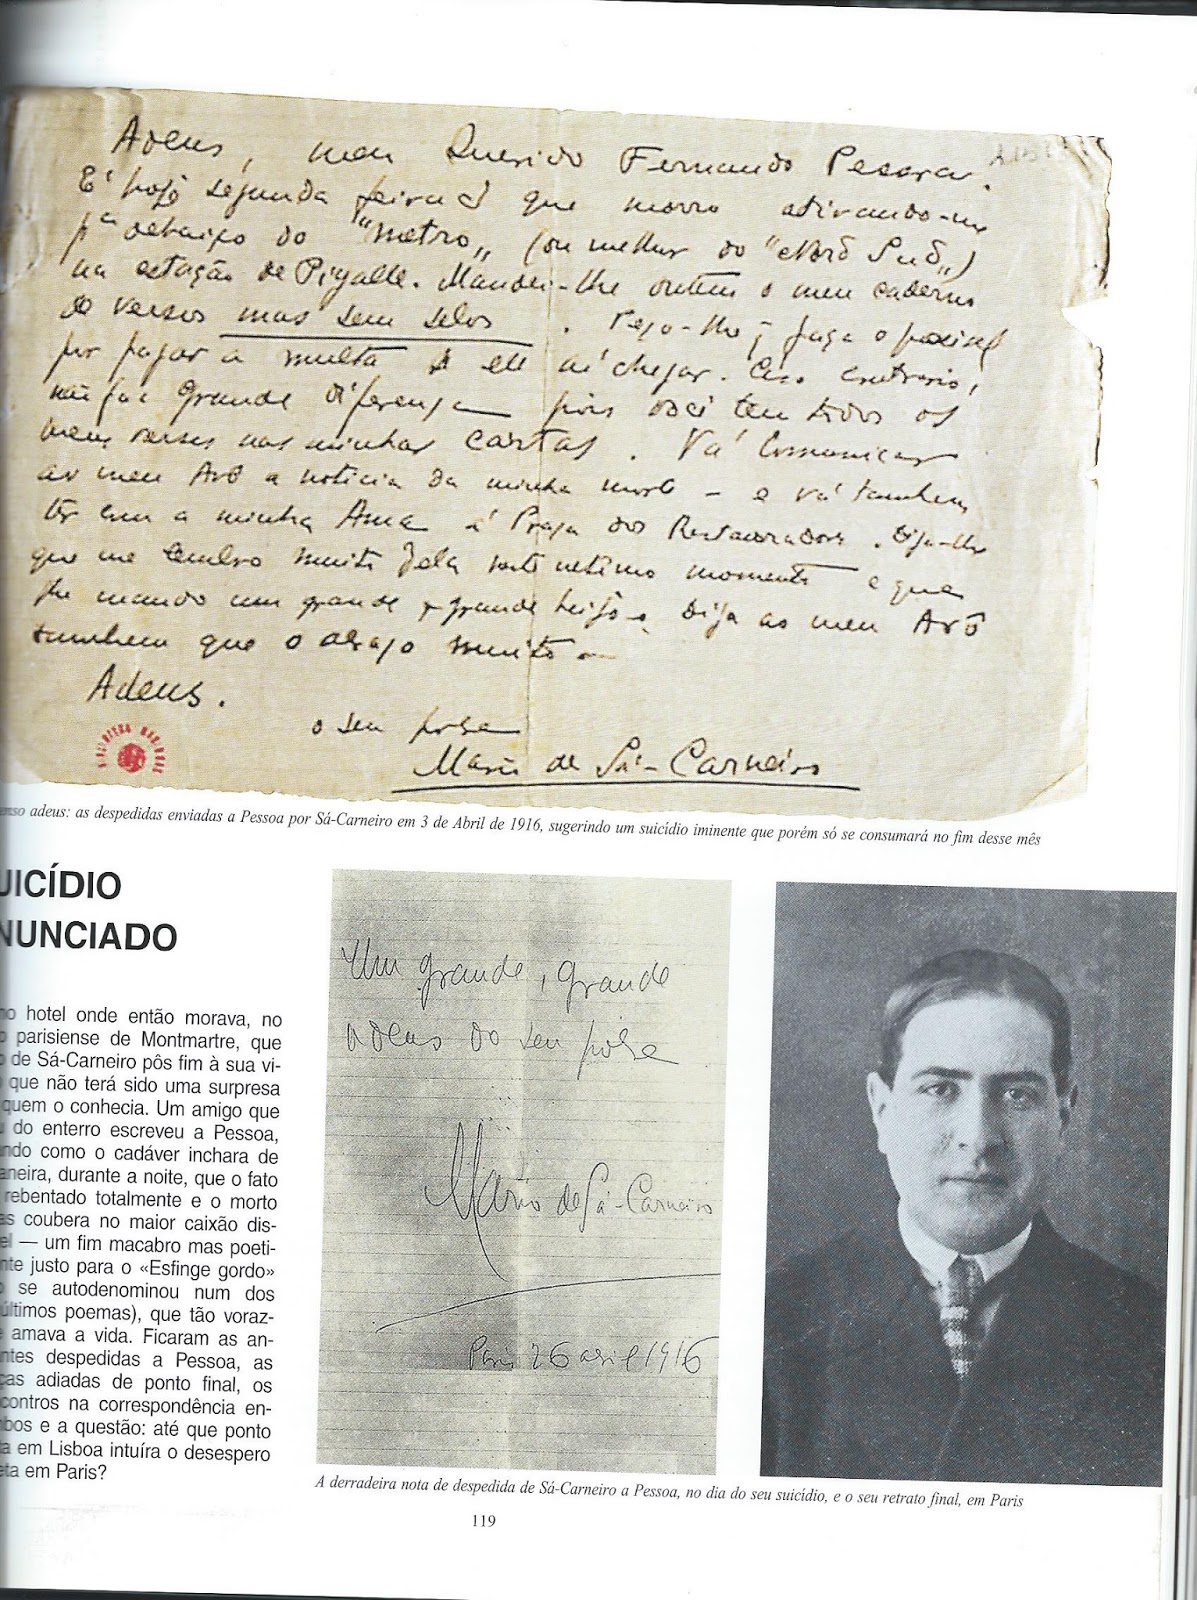 Adeus, meu Querido Fernando Pessoa.
É hoje segunda feira 3 que morro atirando-me
pª debaixo do "Metro" (ou melhor do "Nord Sud")
na estação de Pigalle. Mandei-lhe ontem o meu caderno
de versos mas sem selos. Peço-lhe faça o possivel
por pagar a multa se ele aí chegar. Caso contrario,
não faz grande diferença pois você tem todos os
meus versos nas minhas cartas. Vá comunicar
ao meu Avô a noticia da minha morte — e vá tambem
ter com a minha Ama á Praça dos Restauradores. Diga-lhe
que me lembro muito dela neste ultimo momento e que
lhe mando um grande, grande beijo. Diga ao meu Avô
tambem que o abraço muito
Adeus.
o seu pobre
Mario de Sá-Carneiro
adeus: as despedidas enviadas a Pessoa por Sá-Carneiro em 3 de Abril de 1916, sugerindo um suicídio iminente que porém só se consumará no fim desse mês
UICÍDIO
NUNCIADO
no hotel onde então morava, no
parisiense de Montmartre, que
de Sá-Carneiro pôs fim à sua vi-
que não terá sido uma surpresa
quem o conhecia. Um amigo que
do enterro escreveu a Pessoa,
ndo como o cadáver inchara de
aneira, durante a noite, que o fato
rebentado totalmente e o morto
as coubera no maior caixão dis-
el — um fim macabro mas poeti-
nte justo para o «Esfinge gordo»
se autodenominou num dos
últimos poemas), que tão voraz-
amava a vida. Ficaram as an-
ntes despedidas a Pessoa, as
ças adiadas de ponto final, os
contros na correspondência en-
bos e a questão: até que ponto
ta em Lisboa intuíra o desespero
eta em Paris?
Um grande, grande
adeus do seu pobre
Mário de Sá-Carneiro
Paris 26 abril 1916
A derradeira nota de despedida de Sá-Carneiro a Pessoa, no dia do seu suicídio, e o seu retrato final, em Paris
119